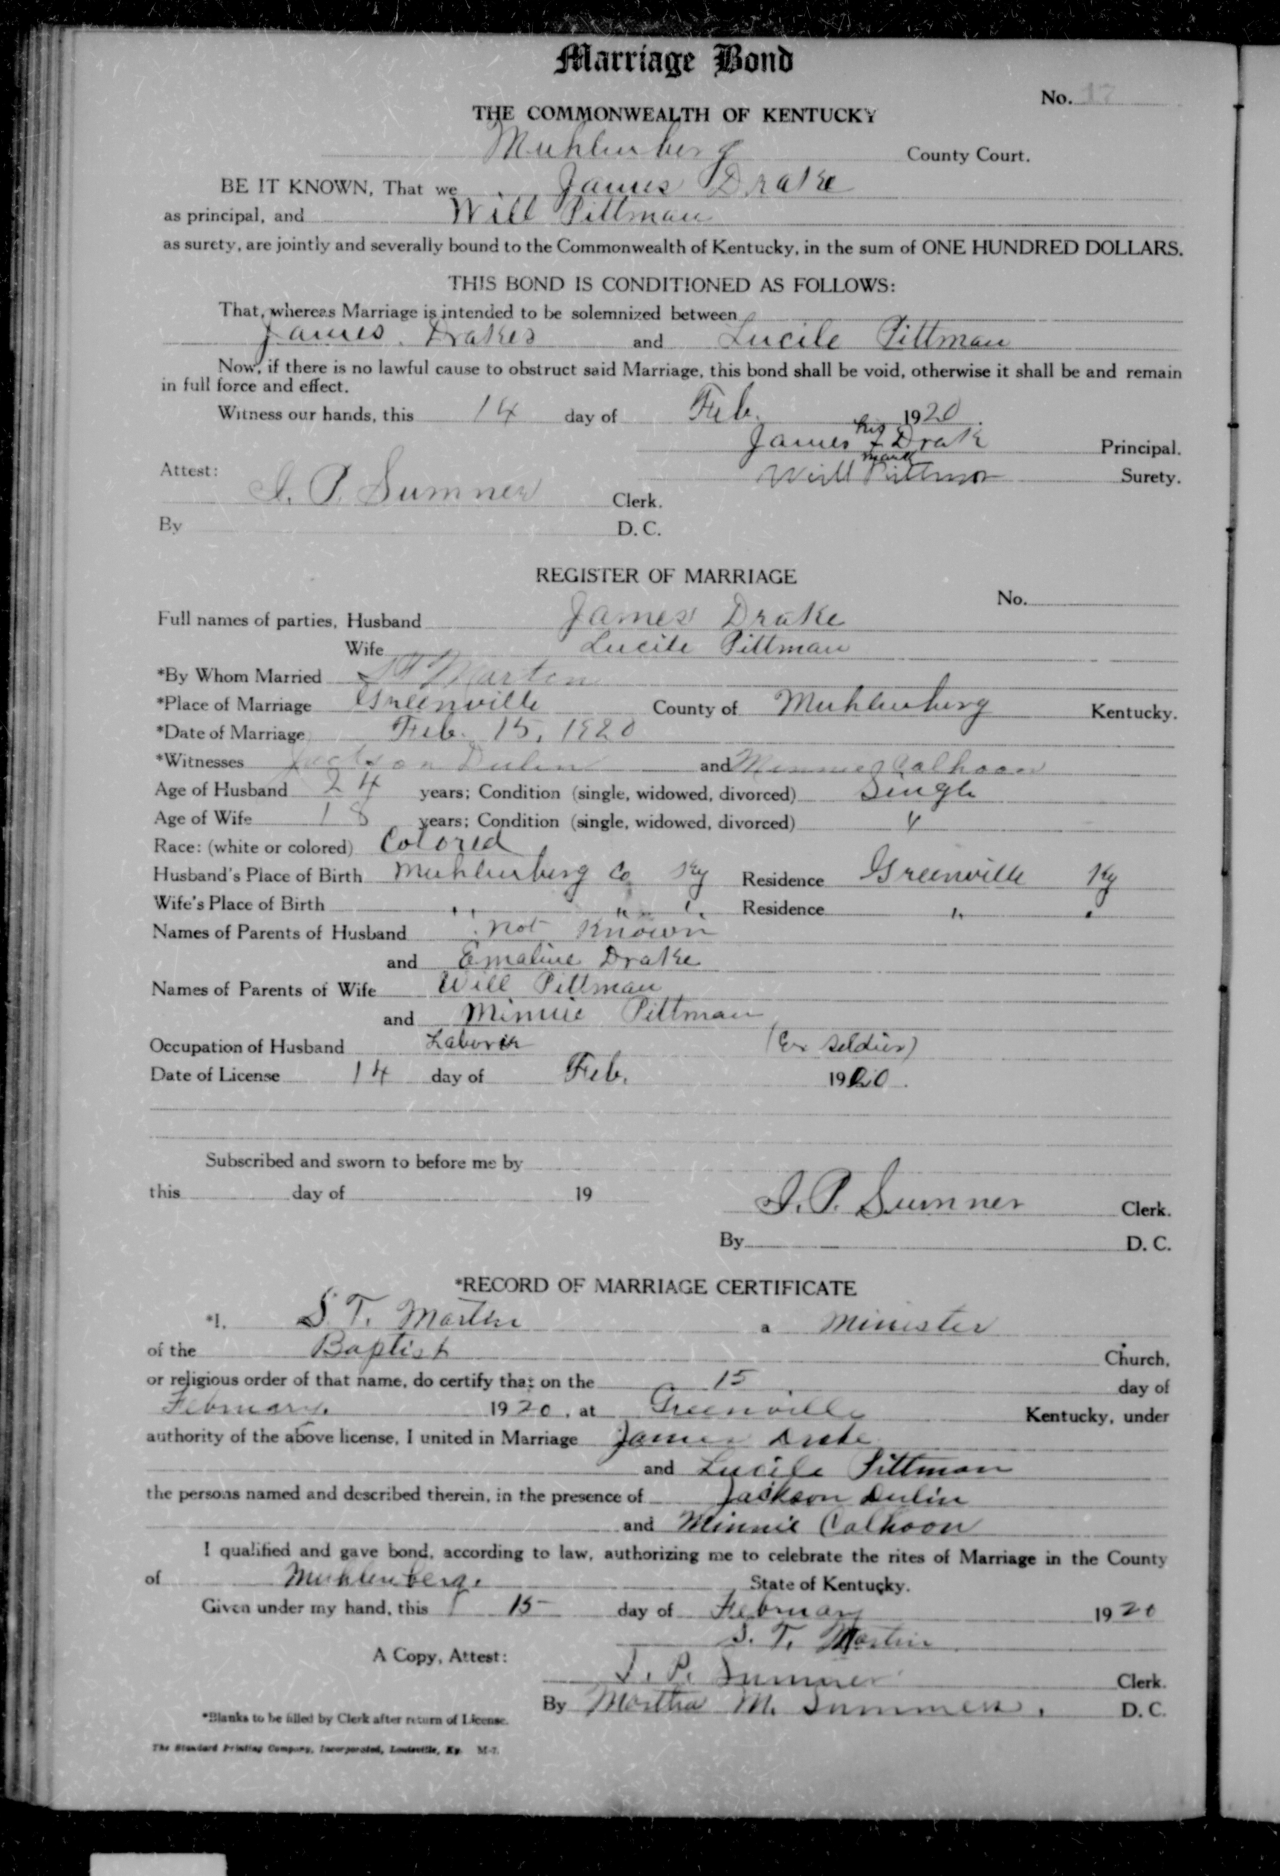 Marriage Bond
No. 17
THE COMMONWEALTH OF KENTUCKY
Muhlenberg County Court.
BE IT KNOWN, That we James Drake
as principal, and Will Pittman
as surety, are jointly and severally bound to the Commonwealth of Kentucky, in the sum of ONE HUNDRED DOLLARS.
THIS BOND IS CONDITIONED AS FOLLOWS:
That, whereas Marriage is intended to be solemnized between
James Drakes and Lucile Pittman
Now, if there is no lawful cause to obstruct said Marriage, this bond shall be void, otherwise it shall be and remain
in full force and effect.
Witness our hands, this 14 day of Feb. 1920
his
James x Drake Principal.
mark
Attest: Will Pittman Surety.
I. P. Sumner Clerk.
By D. C.
REGISTER OF MARRIAGE
No.
Full names of parties, Husband James Drake
Wife Lucile Pittman
*By Whom Married S T Martin
*Place of Marriage Greenville County of Muhlenberg Kentucky.
*Date of Marriage Feb. 15, 1920
*Witnesses Jackson Dulin and Minnie Calhoon
Age of Husband 24 years; Condition (single, widowed, divorced) Single
Age of Wife 18 years; Condition (single, widowed, divorced) "
Race: (white or colored) Colored
Husband's Place of Birth Muhlenberg Co Ky Residence Greenville Ky
Wife's Place of Birth " " " Residence " "
Names of Parents of Husband not known
and Emaline Drake
Names of Parents of Wife Will Pittman
and Minnie Pittman
Occupation of Husband Laborer (Ex soldier)
Date of License 14 day of Feb. 1920.
Subscribed and sworn to before me by
this day of 19
I. P. Sumner Clerk.
By D. C.
*RECORD OF MARRIAGE CERTIFICATE
*I, S. T. Martin a Minister
of the Baptist Church,
or religious order of that name, do certify that on the 15 day of
February. 1920, at Greenville Kentucky, under
authority of the above license, I united in Marriage James Drake
and Lucile Pittman
the persons named and described therein, in the presence of Jackson Dulin
and Minnie Calhoon
I qualified and gave bond, according to law, authorizing me to celebrate the rites of Marriage in the County
of Muhlenberg. State of Kentucky.
Given under my hand, this 15 day of February 1920
S. T. Martin
A Copy, Attest:
I. P. Sumner Clerk.
By Martha M. Summers. D. C.
*Blanks to be filled by Clerk after return of License.
The Standard Printing Company, Incorporated, Louisville, Ky. M-7.